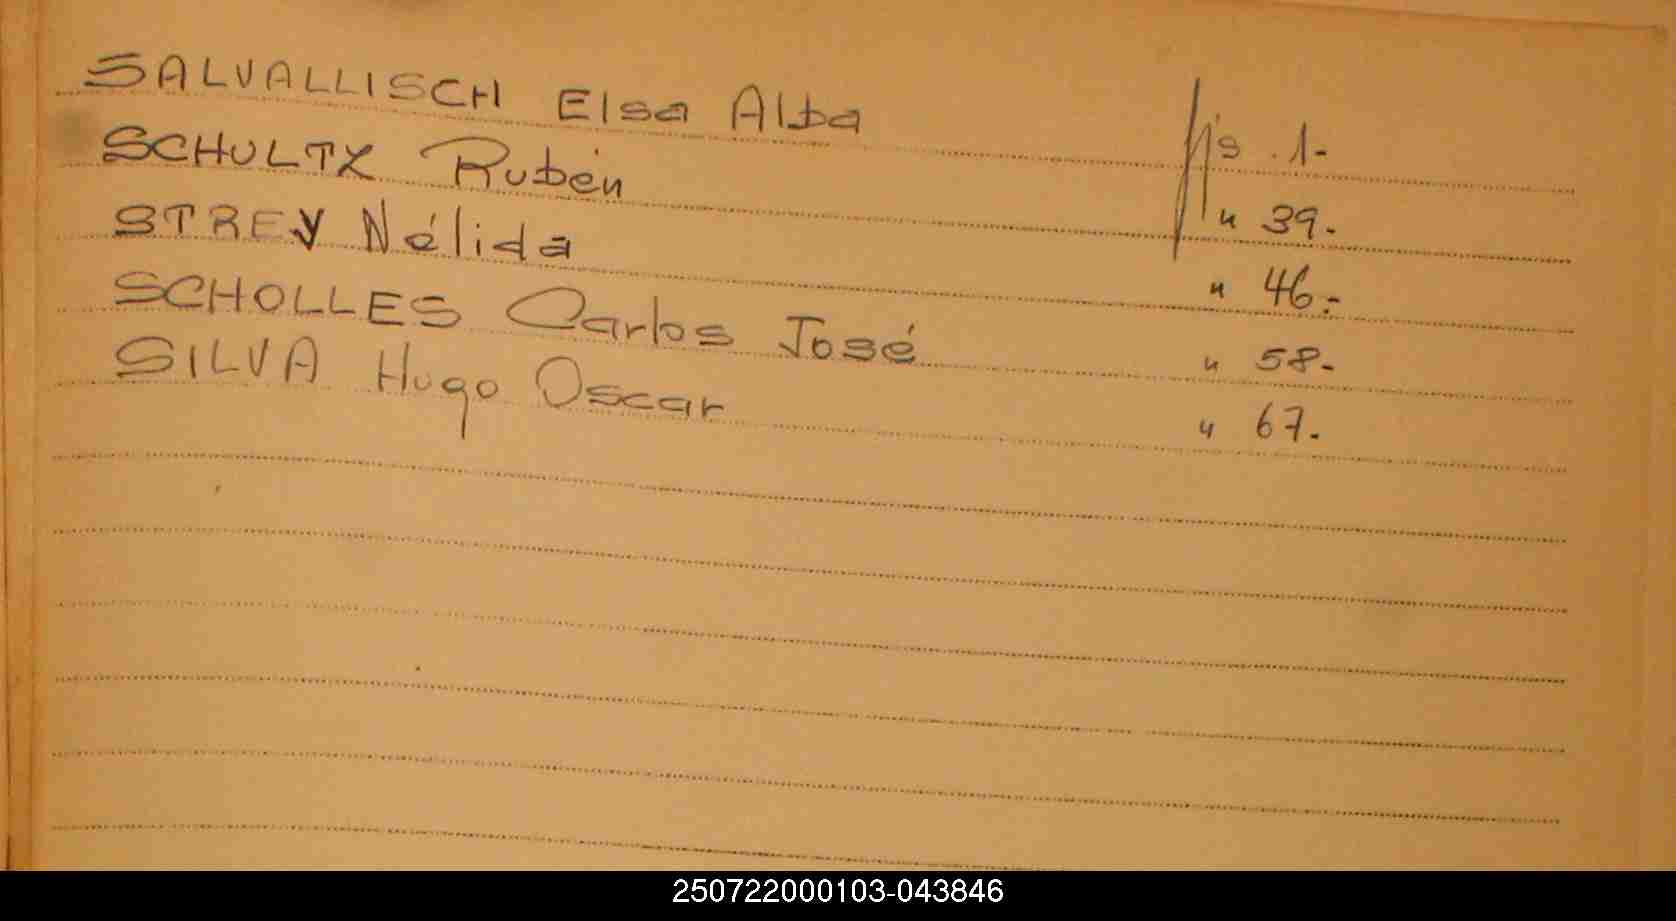 SALVALLISCH Elsa Alba fjs. 1-
SCHULTZ Rubén " 39.-
STREY Nélida " 46.-
SCHOLLES Carlos José " 58.-
SILVA Hugo Oscar " 67.-
250722000103-043846